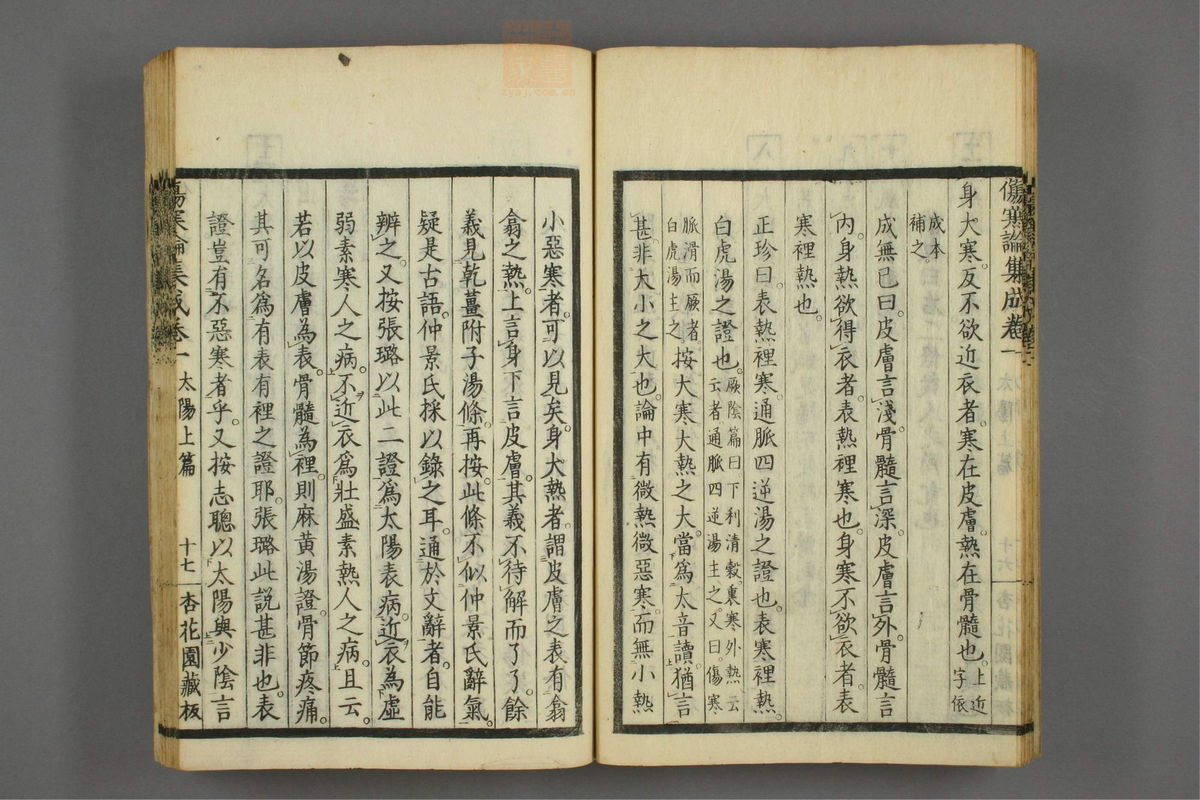 傷寒論集成卷一
身大寒反不欲近衣者寒在皮膚熱在骨髓也上近字依
成本補之
成無已曰皮膚言淺骨髓言深皮膚言外骨髓言
內身熱欲得衣者表熱裡寒也身寒不欲衣者表
寒裡熱也
正珍曰表熱裡寒通脈四逆湯之證也表寒裡熱
白虎湯之證也厥陰篇曰下利清穀裏寒外熱云云者通脈四逆湯主之又曰傷寒
脈滑而厥者白虎湯主之按大寒大熱之大當爲太音讀猶言
甚非大小之大也論中有微熱微惡寒而無小熱
小惡寒者可以見矣身大熱者謂皮膚之表有翕
翕之熱上言身下言皮膚其義不待解而了了餘
義見乾薑附子湯條再按此條不似仲景氏辭氣
疑是古語仲景氏採以錄之耳通於文辭者自能
辨之又按張璐以此二證爲太陽表病近衣爲虛
弱素寒人之病不近衣爲壯盛素熱人之病且云
若以皮膚為表骨髓為裡則麻黃湯證骨節疼痛
其可名爲有表有裡之證耶張璐此説甚非也表
證豈有不惡寒者乎又按志聰以太陽與少陰言
傷寒論集成卷一 太陽上篇 十七 杏花園藏板